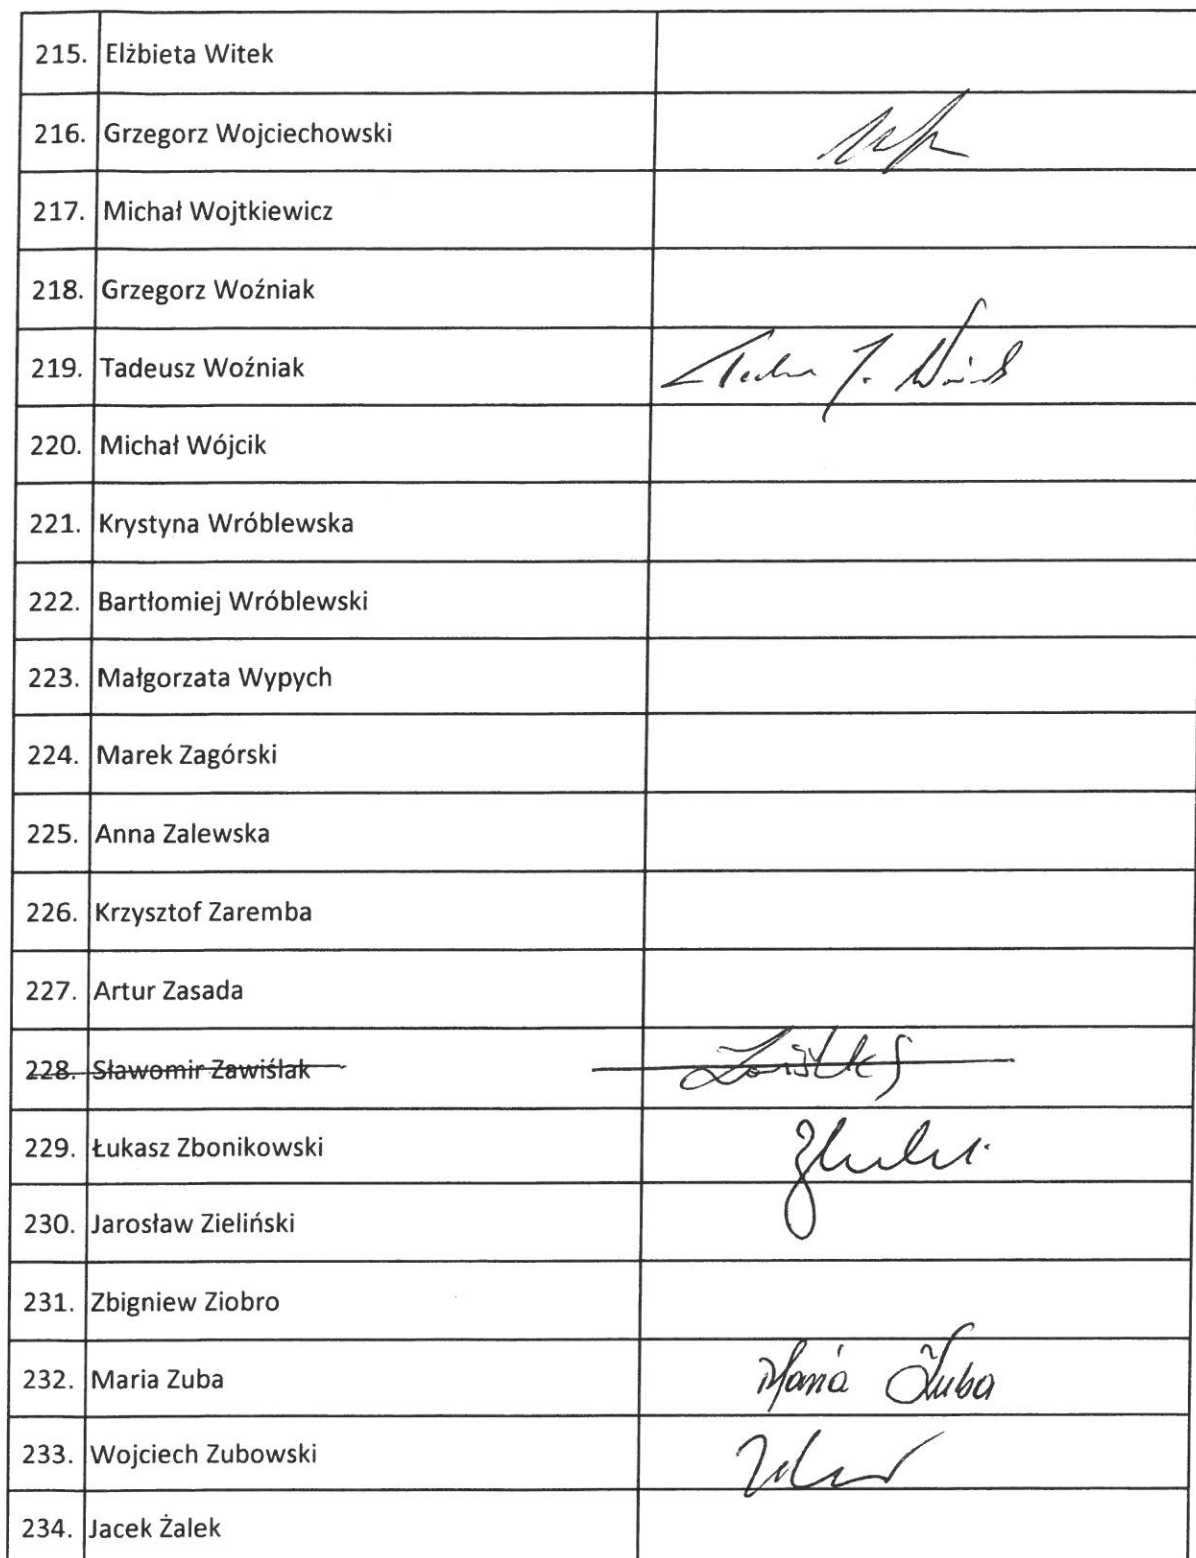 215. Elżbieta Witek
216. Grzegorz Wojciechowski
217. Michał Wojtkiewicz
218. Grzegorz Woźniak
219. Tadeusz Woźniak
220. Michał Wójcik
221. Krystyna Wróblewska
222. Bartłomiej Wróblewski
223. Małgorzata Wypych
224. Marek Zagórski
225. Anna Zalewska
226. Krzysztof Zaremba
227. Artur Zasada
228. Sławomir Zawiślak
229. Łukasz Zbonikowski
230. Jarosław Zieliński
231. Zbigniew Ziobro
232. Maria Zuba Maria Zuba
233. Wojciech Zubowski
234. Jacek Żalek